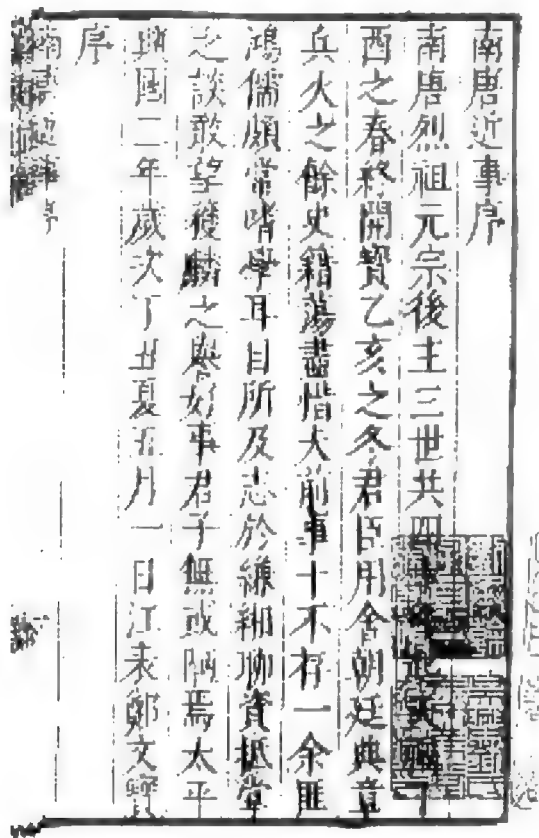 南唐近事序
南唐烈祖元宗後主三世共四
酉之春終開寳乙亥之冬君臣用舍朝廷典章
兵火之餘史籍蕩盡惜夫前事十不存一余匪
鴻儒頗常嗜學耳目所及志於縑緗聊資抵掌
之談敢望獲麟之譽好事君子無或陋焉太平
興國二年歲次丁丑夏五月一日江表鄭文寳
序
南唐近事序